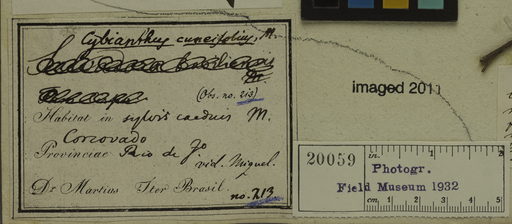 Cybianthus cuneifolius, M.
M.
(Obs. no. 213)
Habitat in sylvis caeduis M.
Corcovado
Provinciae Rio de Jo
vid. Miquel.
Dr Martius Iter Brasil. no. 213
imaged 2011
20059
in. 1 2
Photogr.
Field Museum 1932
cm. 1 2 3 4 5